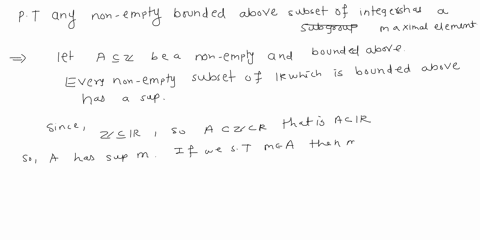 P.T any non-empty bounded above subset of integers has a
subgroup maximal element
⇒ let A ⊆ Z be a non-empty and bounded above.
Every non-empty subset of IR which is bounded above
has a sup.
Since, Z ⊆ IR, so A ⊂ Z ⊂ R that is A ⊂ IR
So, A has sup m. If we s.T m ∈ A then